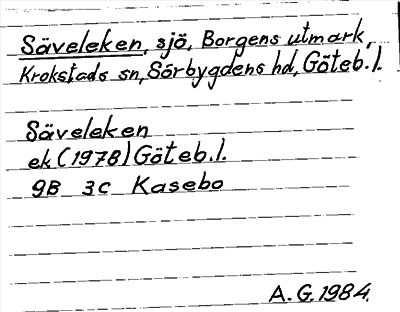 Säveleken, sjö, Borgens utmark,
Krokstads sn, Sörbygdens hd, Göteb. l.
Säveleken
ek (1978) Göteb. l.
9B 3c Kasebo
A. G. 1984.